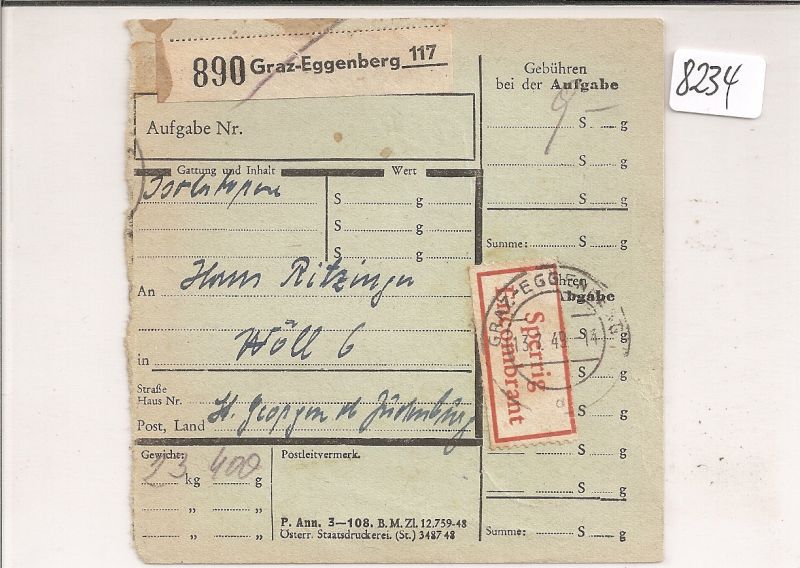 890 Graz-Eggenberg 117
8234
Aufgabe Nr.
Gebühren
bei der Aufgabe
9 –
S g
S g
S g
Summe: S g
Gattung und Inhalt
Wert
S g
S g
S g
An Hans Ritzinger
in Wöll 6
Straße
Haus Nr.
Post, Land St. Georgen ob Judenburg
Sperrig
Encombrant
GRAZ-EGGENBERG
49-14
Abgabe
S g
S g
S g
S g
S g
Summe: S g
Gewicht:
23 kg 400 g
" "
" "
Postleitvermerk.
P. Ann. 3—108. B. M. Zl. 12.759-48
Österr. Staatsdruckerei. (St.) 3487 48